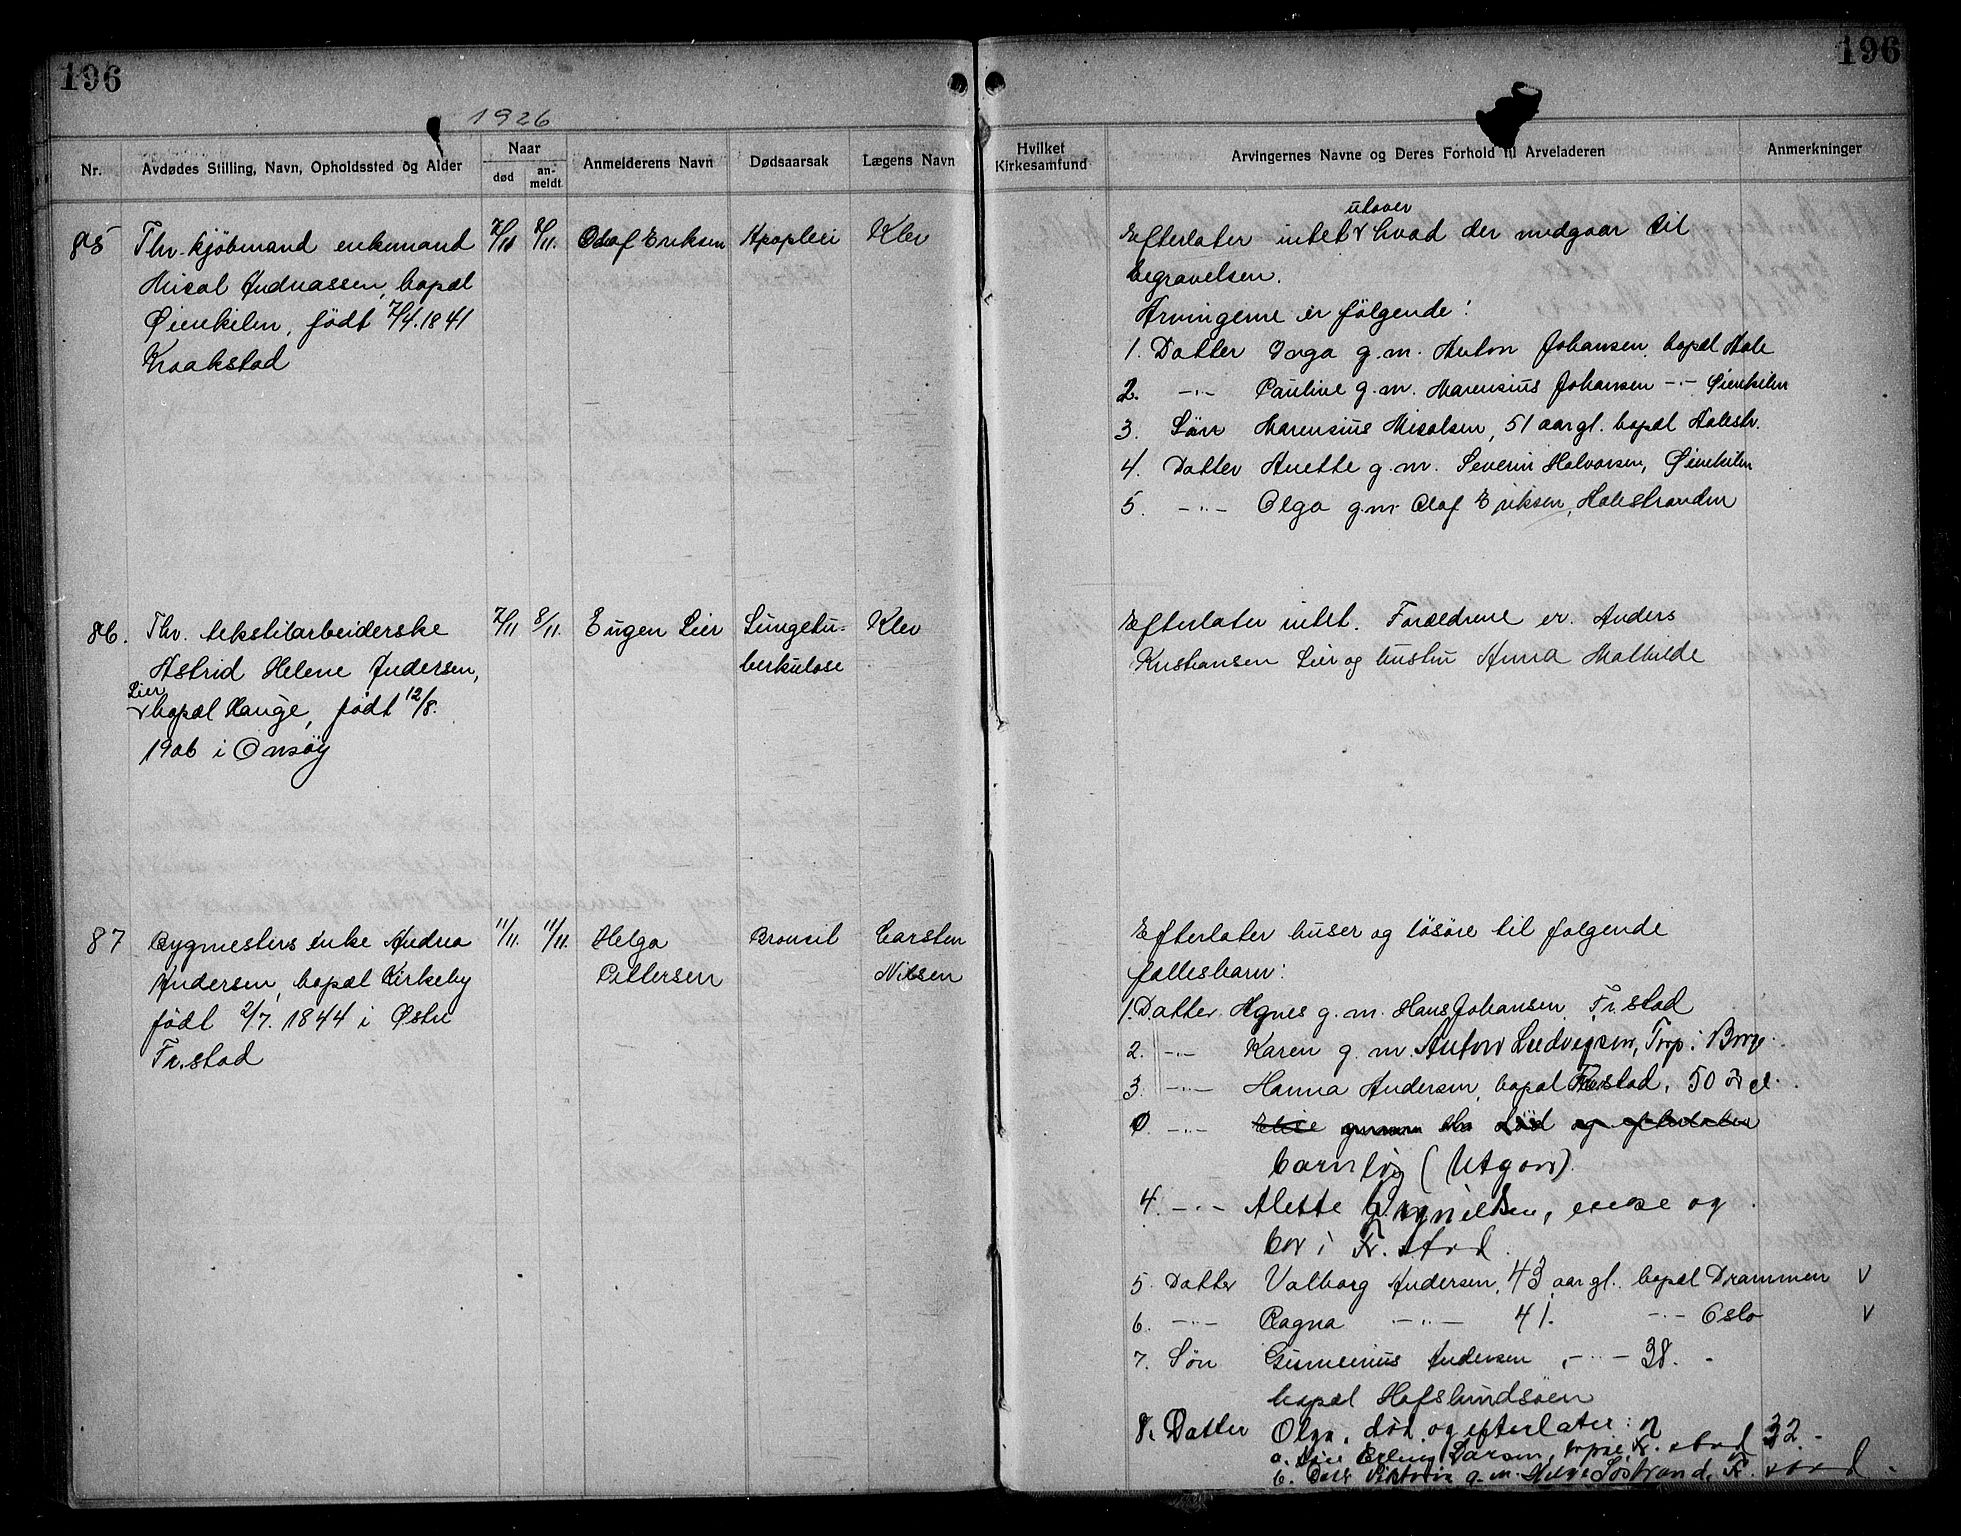 196
196
1926
Nr.
Avdødes Stilling, Navn, Opholdssted og Alder
Naar
død
an-
meldt
Anmelderens Navn
Dødsaarsak
Lægens Navn
Hvilket
Kirkesamfund
Arvingernes Navne og Deres Forhold til Arveladeren
Anmerkninger
85
Fhv. kjøbmand enkemand
Misal Andreassen, bopæl
Øienkilen, født 7/4. 1841
Kraakstad
7/11
8/11.
Olaf Eriksen
Apoplexi
Klev
utover
Efterlater intet hvad der medgaar til
Begravelsen.
Arvingerne er følgende:
1. Datter Inga g.m. Anton Johansen bopæl Hale
2. -"- Pauline g.m. Marensius Johansen -"- Øienkilen
3. Søn Marensius Misalsen, 51 aar gl. bopæl Halestr.
4. Datter Anette g.m. Severin Halvorsen, Øienkilen
5. -"- Olga g.m. Olaf Eriksen, Halestranden
86.
Fhv. tekstilarbeiderske
Astrid Helene Andersen,
Lier
bopæl Hauge, født 12/8.
1906 i Onsøy
7/11
8/11.
Eugen Lier
Lungetu-
berkulose
Klev
Efterlater intet. Forældrene er Anders
Kristiansen Lier og hustru Anna Mathilde
87
Bygmesters enke Andrea
Andersen, bopæl Kirkeby
født 2/7. 1844 i Østre
Fr.stad
11/11.
11/11.
Helga
Pettersen
Bronsit
Carsten
Nilsen
Efterlater huser og løsøre til følgende
fællesbarn:
1. Datter Agnes g.m. Hans Johansen Fr.stad
2. -"- Karen g.m. Anton Ludvigsen, Torp i Borge
3. -"- Hanna Andersen, bopæl Fr.stad, 50 år gl.
-"- Elise død og efterlater
barnløs (Utgaar).
4. -"- Alette enke og
bor i Fr.stad.
5. Datter Valborg Andersen, 43 aar gl. bopæl Drammen V
6. -"- Ragna -"- 41. -"- Oslo V
7. Søn Andersen, -"- 38.
bopæl Hafslundsøen
8. Datter Olga, død og efterlater:
a. Søn Erling Larsen, bopæl Fr.stad 32.
b. Datr g.m. Søstrand, Fr.stad.